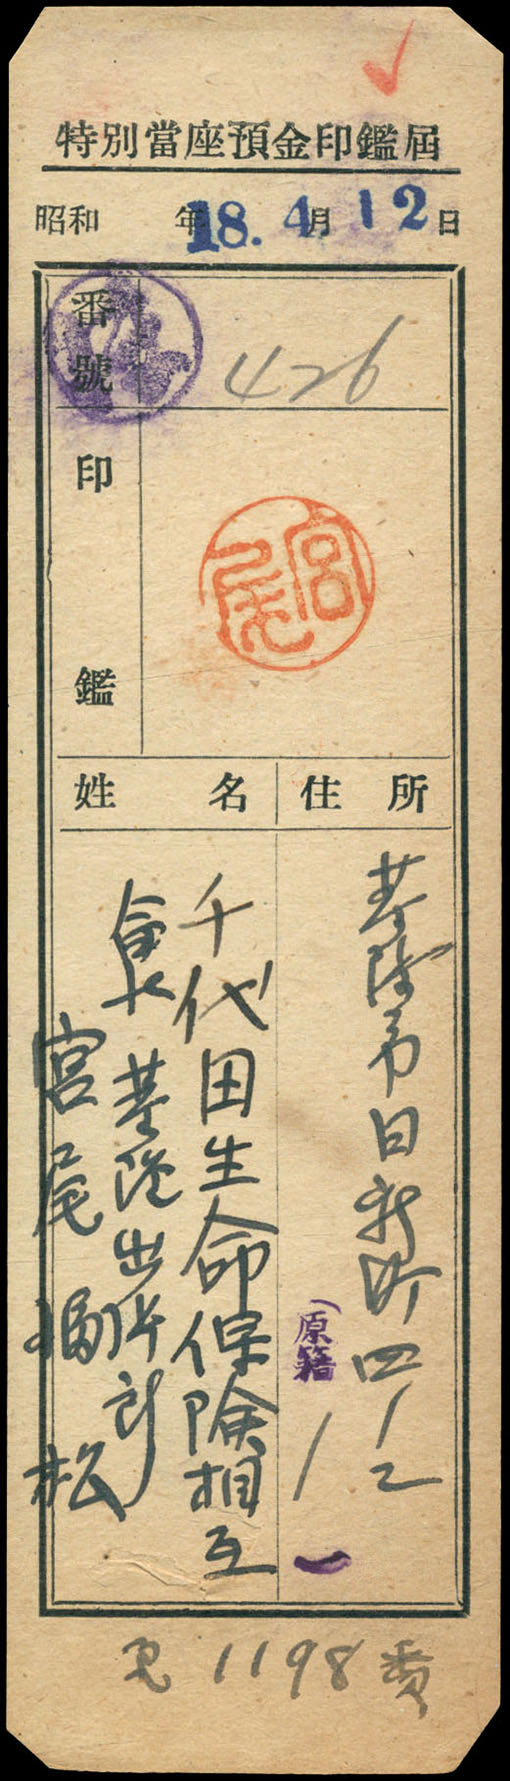 特別當座預金印鑑屆
昭和 年18.4月12日
番號
426
印鑑
宮尾
姓名 住所
基隆市日新町四ノ二
(原籍
千代田生命保険相互
會社基隆出張所
宮尾福松
電1198番